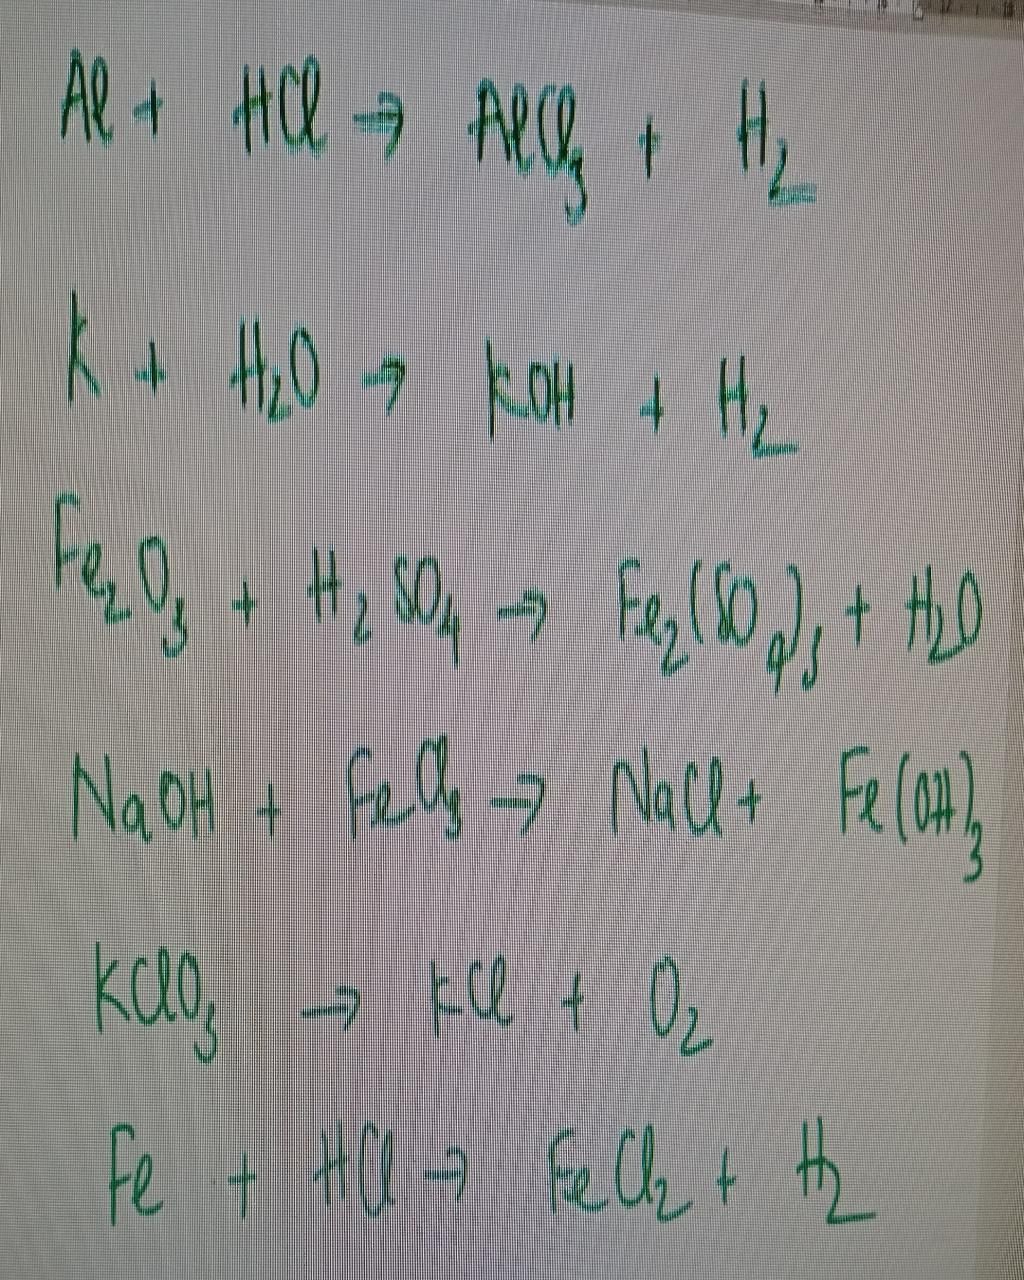 Al + HCl → AlCl₃ + H₂
K + H₂O → KOH + H₂
Fe₂O₃ + H₂SO₄ → Fe₂(SO₄)₃ + H₂O
NaOH + FeCl₃ → NaCl + Fe(OH)₃
KClO₃ → KCl + O₂
Fe + HCl → FeCl₂ + H₂